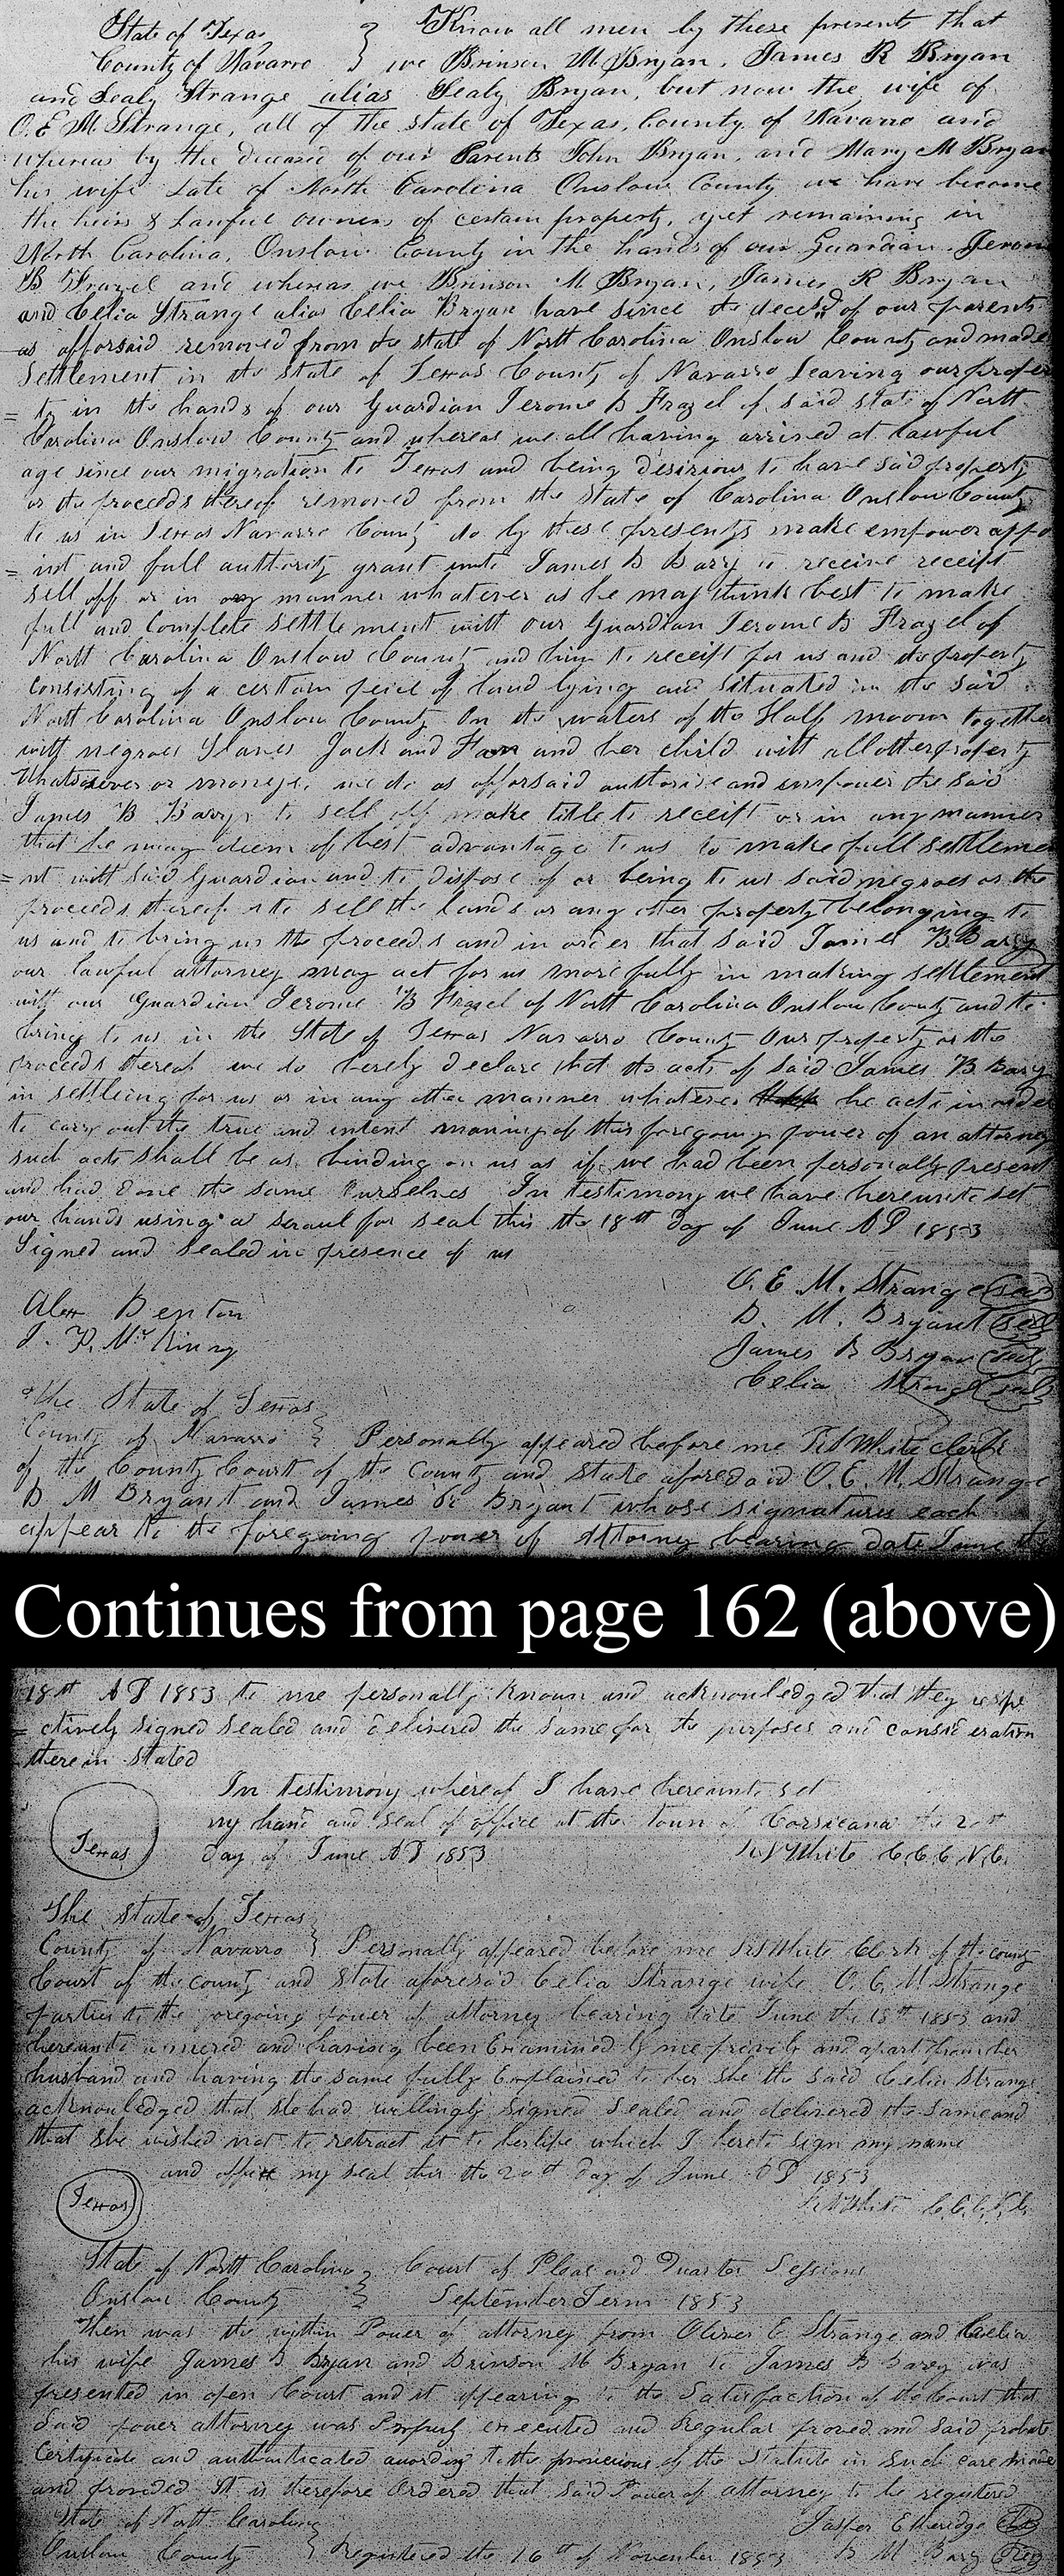 State of Texas } Know all men by these presents that
County of Navarro } we Brinson M Bryan, James R Bryan
and Sealy Strange alias Sealy Bryan, but now the wife of
O. E M. Strange, all of the state of Texas, County of Navarro and
whereas by the decease of our Parents John Bryan, and Mary M Bryan
his wife Late of North Carolina Onslow County we have become
the heirs & Lawful owners of certain property, yet remaining in
North Carolina, Onslow County in the hands of our Guardian Jerome
B Frazel and whereas we Brinson M Bryan, James R Bryan
and Celia Strange alias Celia Bryan have since the decesd of our parents
as afforsaid removed from the state of North Carolina Onslow County and made
Settlement in the state of Texas County of Navarro Leaving our proper
= ty in the hands of our Guardian Jerome B Frazel of said state of North
Carolina Onslow County and whereas we all having arrived at lawful
age since our migration to Texas and being desirious to have said property
or the proceeds thereof removed from the state of Carolina Onslow County
to us in Texas Navarro County do by these presents make empower appo
= int and full authority grant unto James B Barry to receive receipt
sell off or in any manner whatever as he may think best to make
full and complete settlement with our Guardian Jerome B Frazel of
North Carolina Onslow County and him to receipt for us and the property
consisting of a certain peice of land lying and situated in the said
North Carolina Onslow County On the waters of the Half moon together
with negroes Slaves Jack and and her child with all other property
Whatsoever or moneys, we do as afforsaid authorise and empower the said
James B Barry to sell off make title to receipt or in any manner
that he may deem of best advantage to us to make full settleme
= nt with said Guardian and to dispose of or being to us said negroes or the
proceeds thereof to sell the lands or any other property belonging to
us and to bring us the proceeds and in order that said James B. Bary
our lawful attorney may act for us more fully in making settlement
with our Guardian Jerome B Frazel of North Carolina Onslow County and to
bring to us in the State of Texas Navarro County Our property or the
proceeds thereof we do hereby declare that the acts of said James B Bary
in settleing for us or in any other manner whatever he acts in order
to carry out the true and intent meaning of this foregoing power of an attorney
such acts shall be as binding on us as if we had been personally present
and had done the same Ourselves In testimony we have hereunto set
our hands using a scraul for seal this the 18th day of June AD 1853
Signed and sealed in presence of us
O. E M. Strange (seal)
Alex Benton B. M. Bryant (seal)
J. P. McKinny James R Bryan (seal)
Celia Strange (seal)
The State of Texas
County of Navarro } Personally appeared before me White clerk
of the County Court of the County and state aforesaid O. E. M. Strange
B M Bryant and James R Bryant whose signatures each
appear to the foregoing power of Attorney bearing date June the
Continues from page 162 (above)
18th AD 1853 to me personally known and acknowledged that they respe
= ctively signed sealed and delivered the same for the purposes and consideration
therein stated
In testimony whereof I have hereunto set
my hand and seal of office at the town of Corsicana the 20th
Texas day of June AD 1853 White C.C.C N.C.
The State of Texas
County of Navarro } Personally appeared before me White Clerk of the county
Court of the county and state aforesaid Celia Strange wife O. E. M. Strange
parties to the foregoing power of attorney bearing date June the 18th 1853 and
hereunto annexed and having been Examined by me privily and apart from her
husband and having the same fully Explained to her she the said Celia Strange
acknowledged that she had willingly signed sealed and delivered the same and
that she wished not to retract it to which I hereto sign my name
and affix my seal this the 20th day of June AD 1853
Texas White C.C.C.N.C.
State of North Carolina } Court of Pleas and Quarter Sessions
Onslow County } September Term 1853
Then was the within Power of attorney from Oliver E Strange and Caelia
his wife James B Bryan and Brinson M Bryan to James B Barey was
presented in open Court and it appearing to the Satisfaction of the Court that
Said power attorney was Properly executed and Regular proved and said probate
Certificate and authenticated according to the provisions of the Statute in such care made
and provided It is therefore Ordered that said Power of attorney to be registered
State of North Carolina } Jasper Etheridge
Onslow County } Registered the 16th of November 1853 B M Bary (Reg)